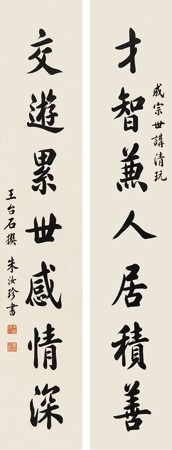 成宗世講清玩
才智兼人居積善
交遊累世感情深
王台石撰 朱汝珍書